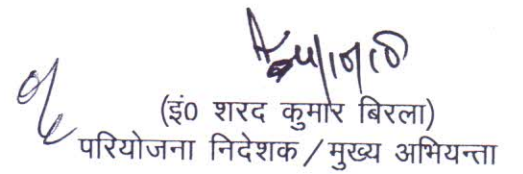 (इं0 शरद कुमार बिरला)
परियोजना निदेशक / मुख्य अभियन्ता